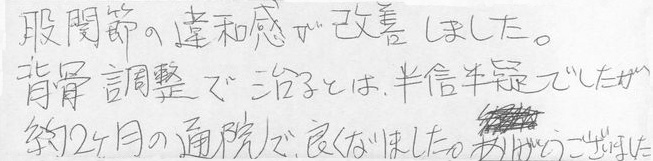 股関節の違和感が改善しました。
背骨調整で治るとは、半信半疑でしたが
約2ヶ月の通院で、良くなりました。ありがとうございました